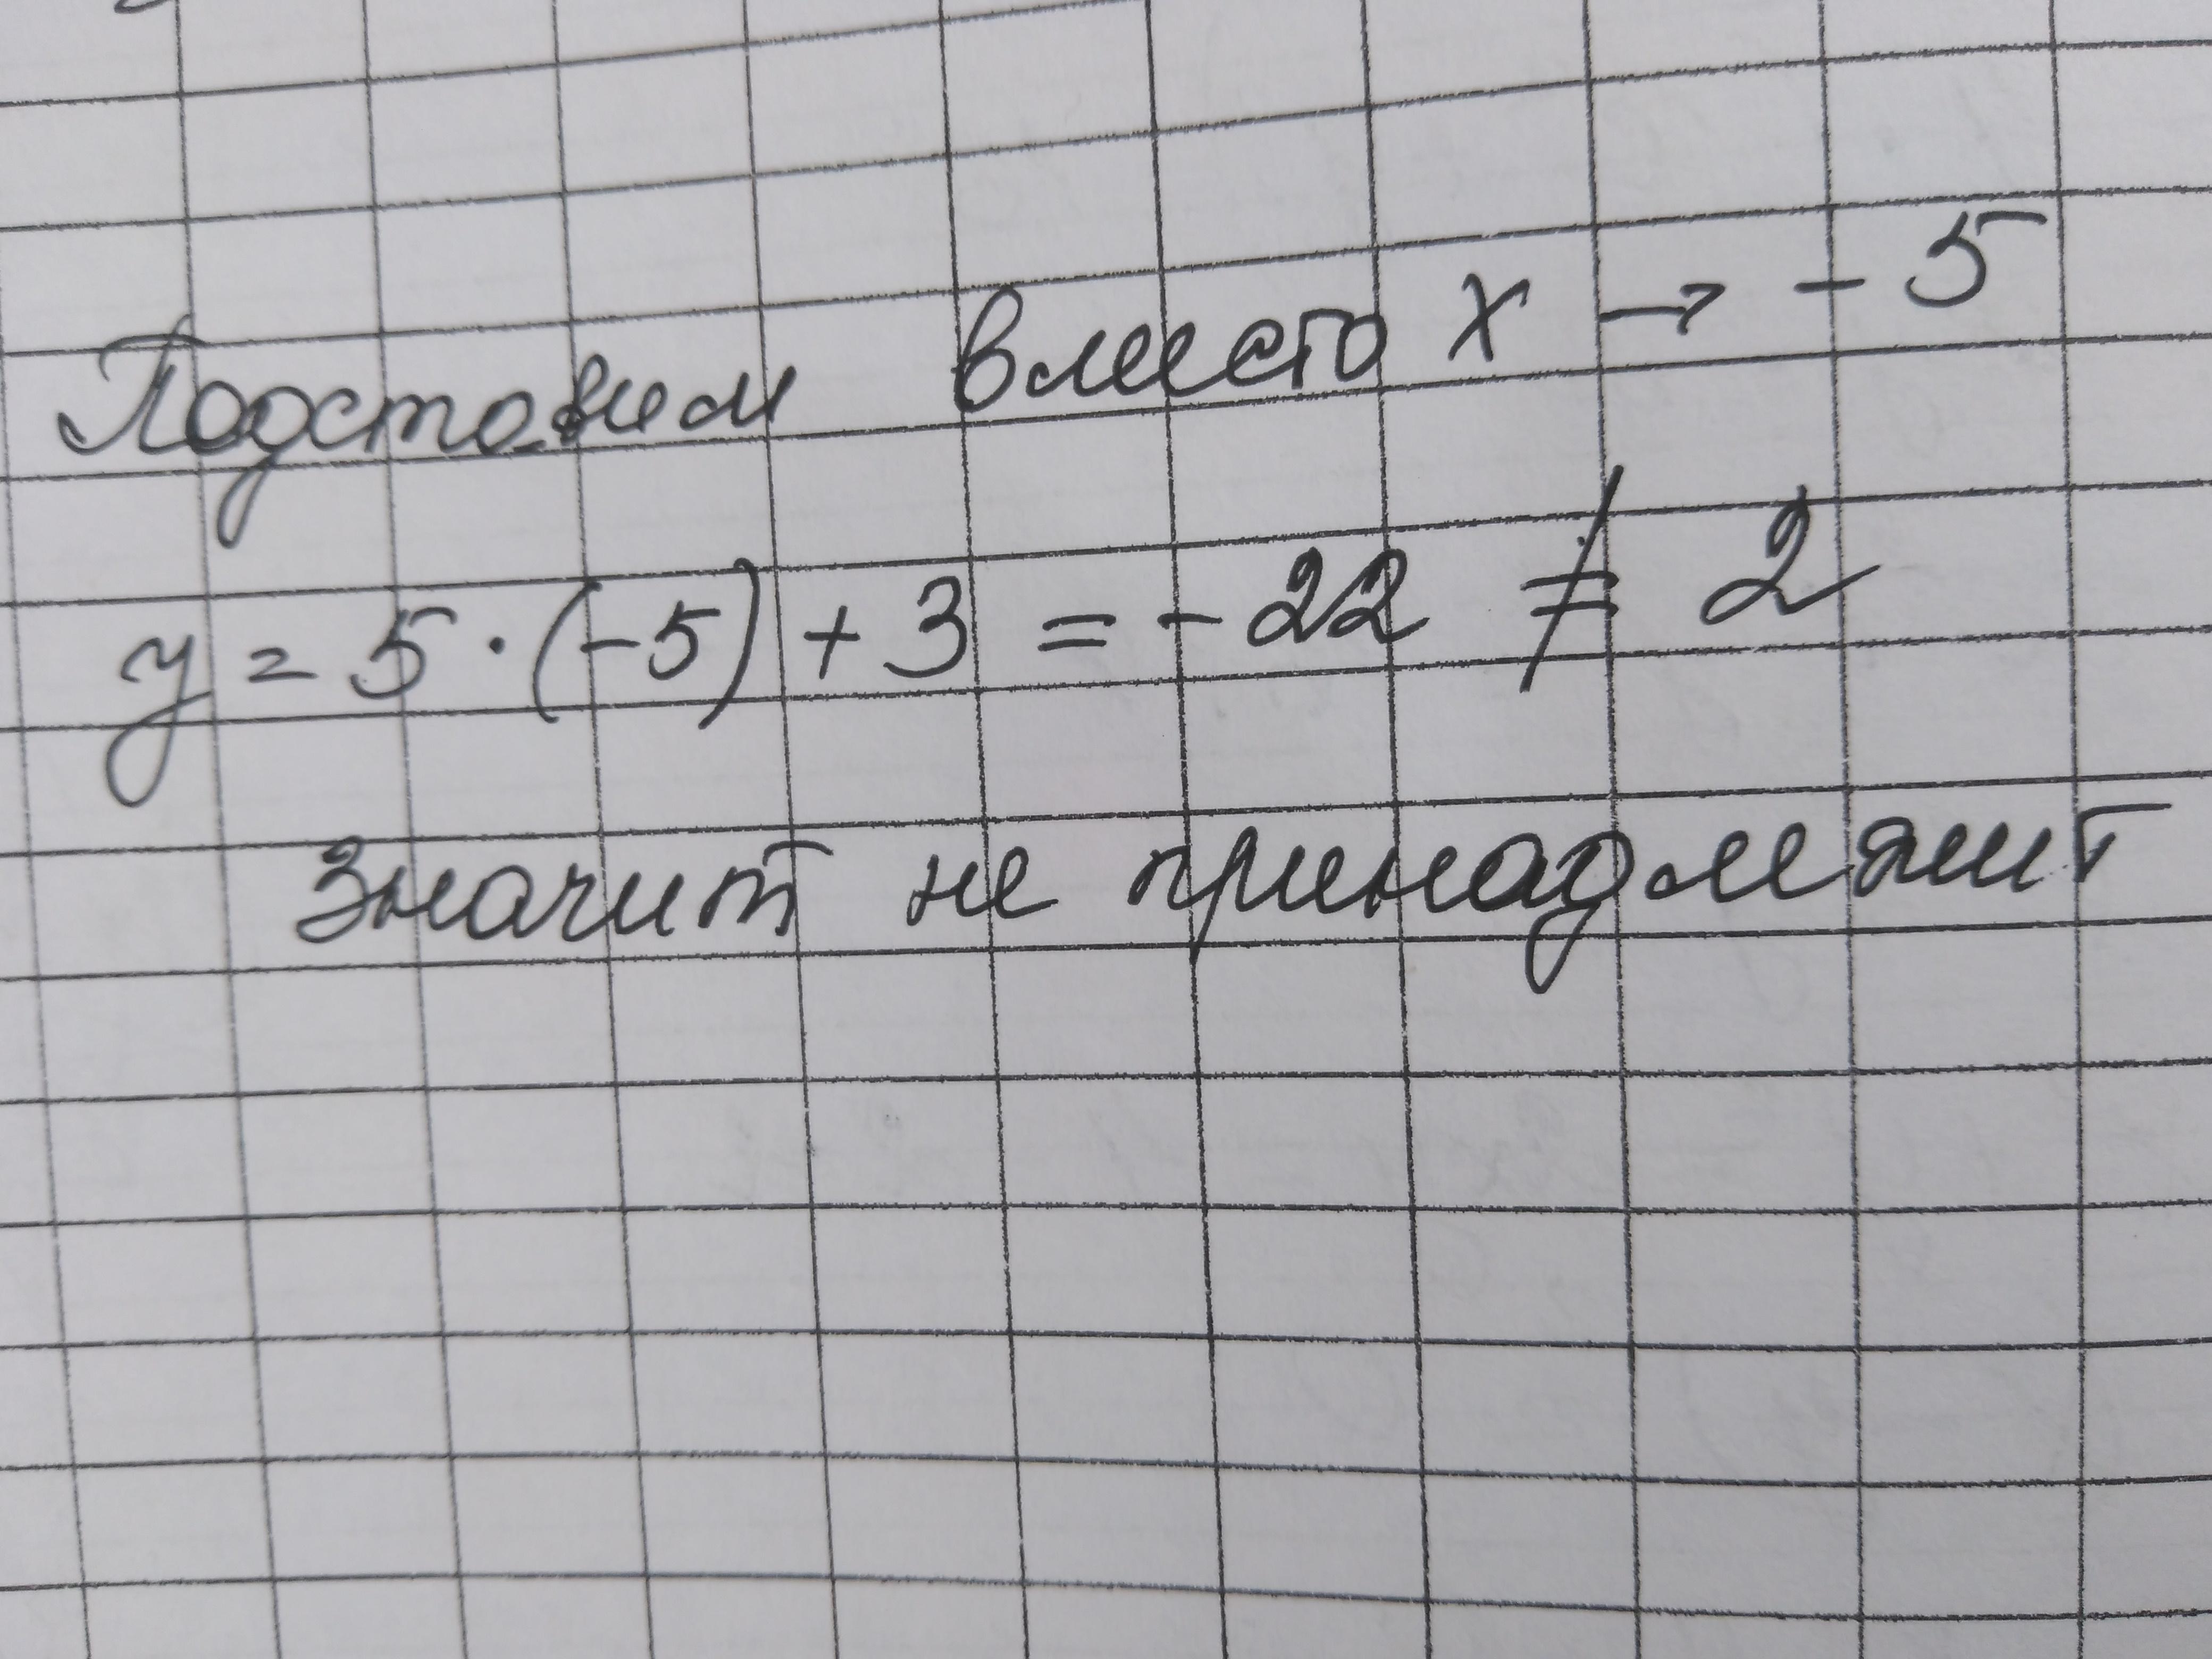 Подставим вместо x → -5
y = 5 · (-5) + 3 = -22 ≠ 2
Значит не принадлежит